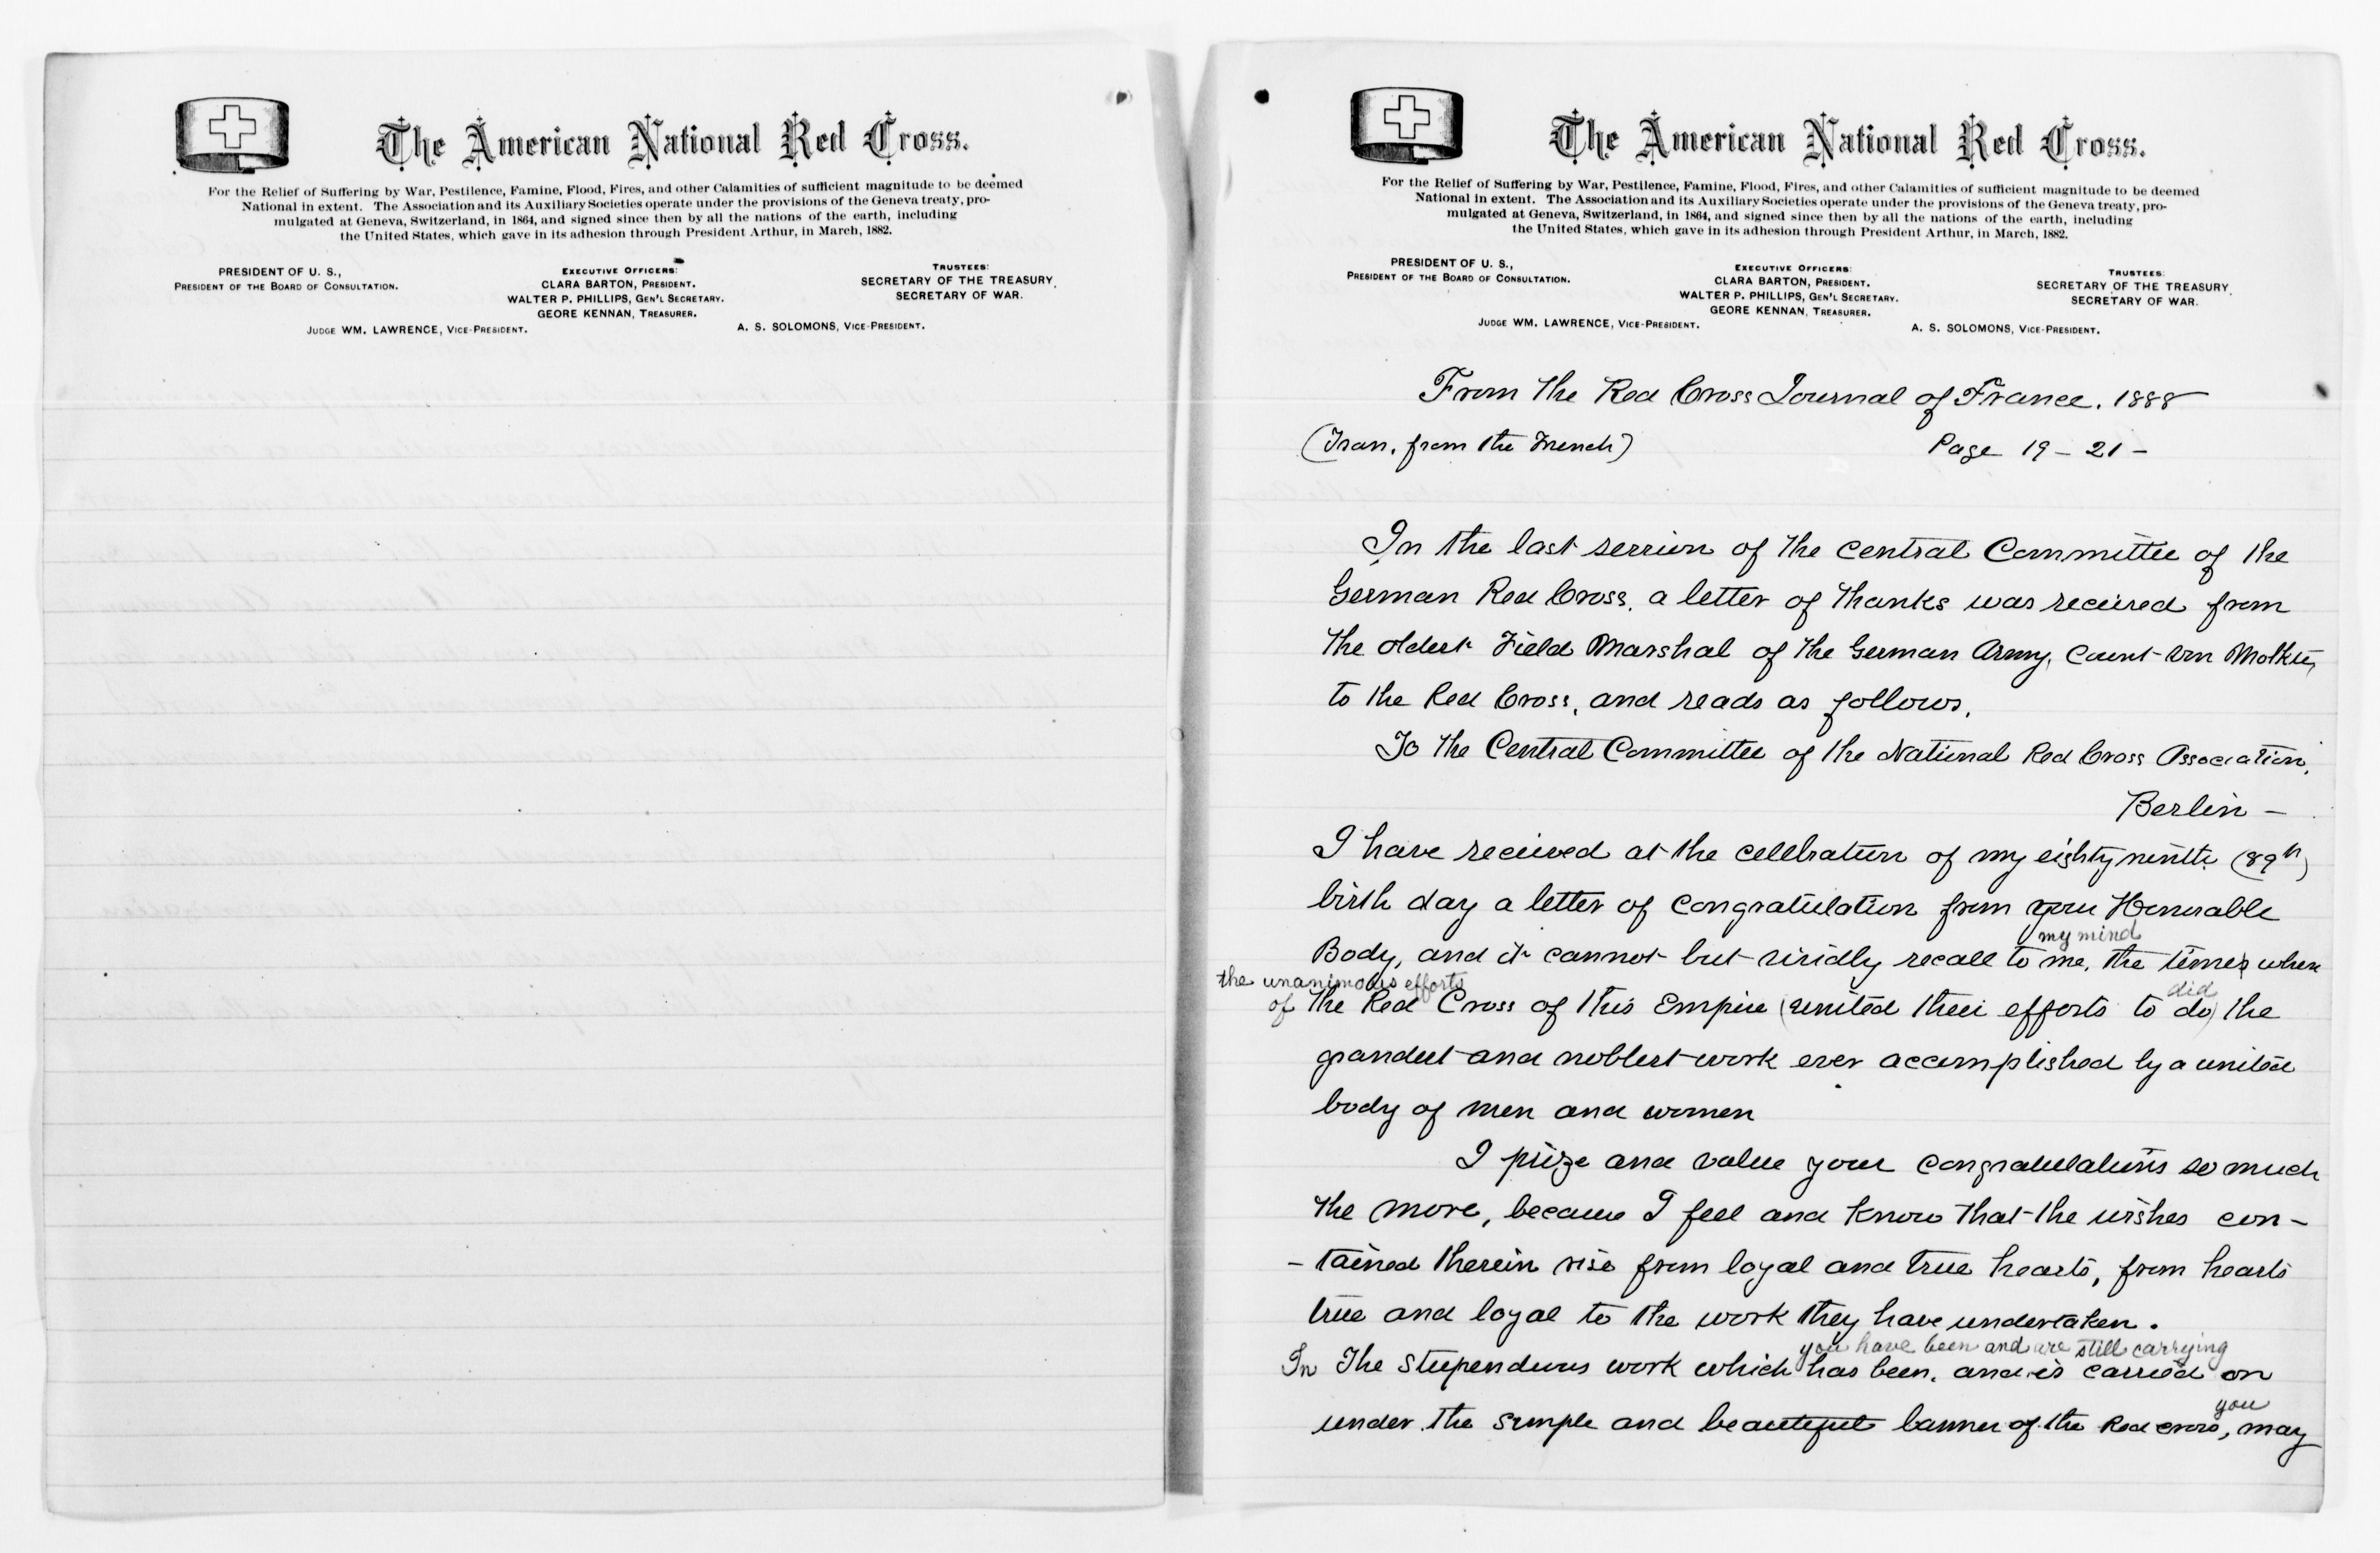 The American National Red Cross.
For the Relief of Suffering by War, Pestilence, Famine, Flood, Fires, and other Calamities of sufficient magnitude to be deemed
National in extent. The Association and its Auxiliary Societies operate under the provisions of the Geneva treaty, pro-
mulgated at Geneva, Switzerland, in 1864, and signed since then by all the nations of the earth, including
the United States, which gave in its adhesion through President Arthur, in March, 1882.
PRESIDENT OF U. S.,
PRESIDENT OF THE BOARD OF CONSULTATION.
EXECUTIVE OFFICERS:
CLARA BARTON, PRESIDENT.
WALTER P. PHILLIPS, GEN'L SECRETARY.
GEORE KENNAN, TREASURER.
TRUSTEES:
SECRETARY OF THE TREASURY.
SECRETARY OF WAR.
JUDGE WM. LAWRENCE, VICE-PRESIDENT.
A. S. SOLOMONS, VICE-PRESIDENT.
The American National Red Cross.
For the Relief of Suffering by War, Pestilence, Famine, Flood, Fires, and other Calamities of sufficient magnitude to be deemed
National in extent. The Association and its Auxiliary Societies operate under the provisions of the Geneva treaty, pro-
mulgated at Geneva, Switzerland, in 1864, and signed since then by all the nations of the earth, including
the United States, which gave in its adhesion through President Arthur, in March, 1882.
PRESIDENT OF U. S.,
PRESIDENT OF THE BOARD OF CONSULTATION.
EXECUTIVE OFFICERS:
CLARA BARTON, PRESIDENT.
WALTER P. PHILLIPS, GEN'L SECRETARY.
GEORE KENNAN, TREASURER.
TRUSTEES:
SECRETARY OF THE TREASURY.
SECRETARY OF WAR.
JUDGE WM. LAWRENCE, VICE-PRESIDENT.
A. S. SOLOMONS, VICE-PRESIDENT.
From the Red Cross Journal of France. 1888
(Tran. from the French)
Page 19 - 21 -
In the last session of the central Committee of the
German Red Cross, a letter of thanks was received from
the oldest Field Marshal of the German Army, Count von Moltke,
to the Red Cross, and reads as follows.
To the Central Committee of the National Red Cross Association,
Berlin -
I have received at the celebration of my eighty ninth (89th)
birth day a letter of congratulation from your Honorable
my mind
Body, and it cannot but vividly recall to me, the times when
the unanimous efforts
did
of the Red Cross of this Empire (united their efforts to do) the
grandest and noblest work ever accomplished by a united
body of men and women
I prize and value your congratulations so much
the more, because I feel and know that the wishes con-
- tained therein rise from loyal and true hearts, from hearts
true and loyal to the work they have undertaken.
you have been and are still carrying
In The stupendous work which has been, and is carried on
you
under the simple and beautiful banner of the Red cross, may